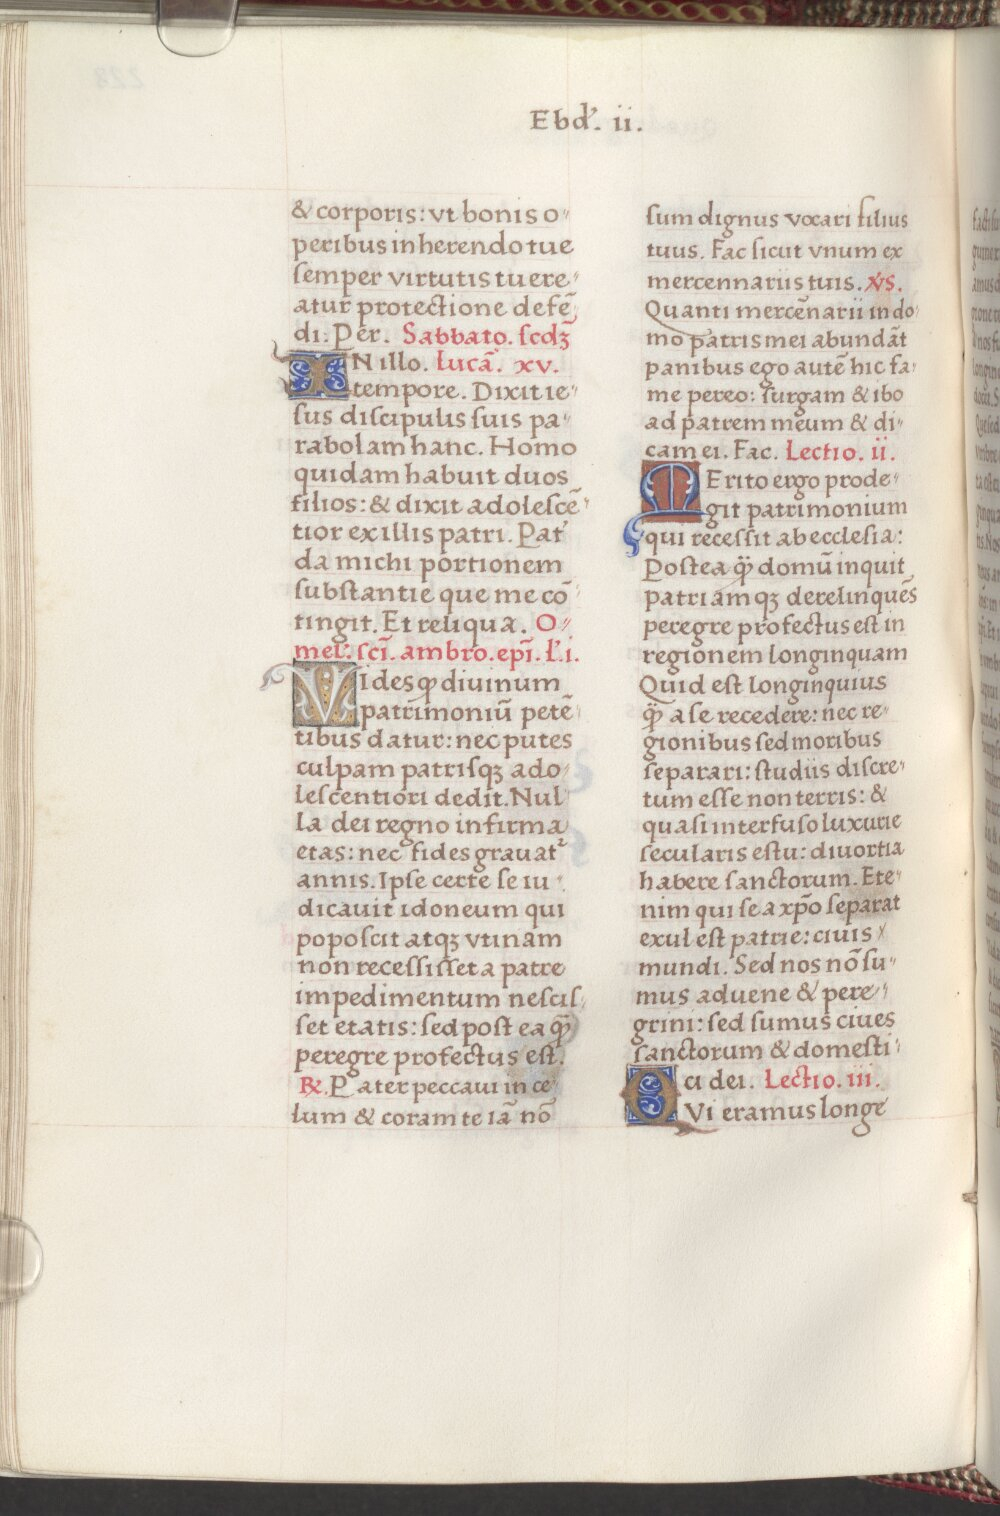 Ebdꝰ. ii.
& corporis: vt bonis o″
peribus inherendo tue
semper virtutis tuere″
atur protectione defē″
di. Per. Sabbato. scdꝫ
IN illo. lucā. xv.
tempore. Dixit ie″
sus discipulis suis pa″
rabolam hanc. Homo
quidam habuit duos
filios: & dixit adolescē″
tior ex illis patri. Pat̉
da michi portionem
substantie que me cō
tingit. Et reliqua. O″
mel̉. scī. ambro. epī. l̉.i.
Vides ꝙ divinum
patrimoniū petē″
tibus datur: nec putes
culpam patrisqꝫ ado″
lescentiori dedit. Nul
la dei regno infirma
etas: nec fides gravat᷑
annis. Ipse certe se iu″
dicavit idoneum qui
poposcit atqꝫ vtinam
non recessisset a patre
impedimentum nescis″
set etatis: sed post ea ꝙ̄
peregre profectus est.
℞. Pater peccavi in ce″
lum & coram te iā nō
sum dignus vocari filius
tuus. Fac sicut vnum ex
mercennariis tuis. v̉s.
Quanti mercēnarii in do″
mo patris mei abundāt
panibus ego autē hic fa″
me pereo: surgam & ibo
ad patrem meum & di″
cam ei. Fac. Lectio. ii.
Merito ergo prode″
git patrimonium
qui recessit ab ecclesia:
Postea ꝙ̄ domū inquit
patriamqꝫ derelinquēs
peregre profectus est in
regionem longinquam
Quid est longinquius
ꝙ̄ a se recedere: nec re″
gionibus sed moribus
separari: studiis discre″
tum esse non terris: &
quasi interfuso luxurie
secularis estu: divortia
habere sanctorum. Ete″
nim qui se a xp̄o separat
exul est patrie: civis
mundi. Sed nos nō su″
mus advene & pere″
grini: sed sumus cives
sanctorum & domesti″
ci dei. Lectio. iii.
Qvi eramus longe